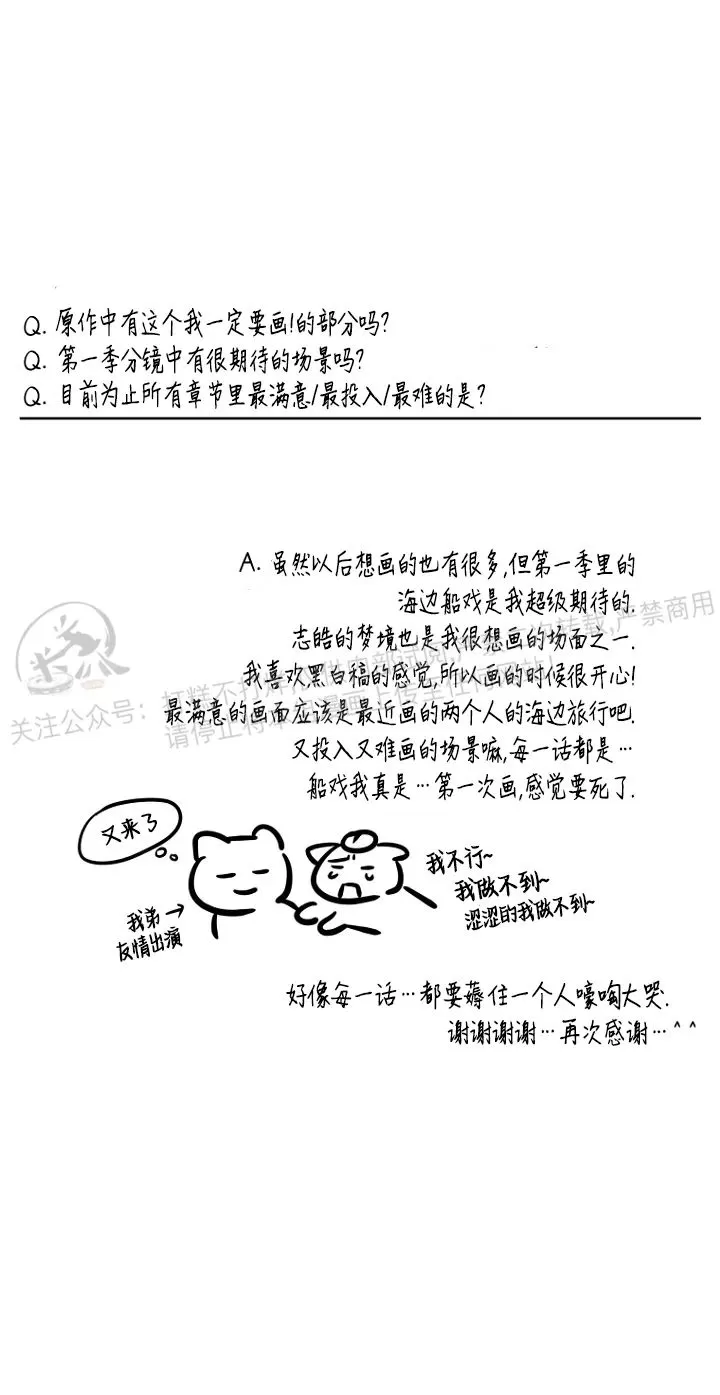 Q. 原作中有这个我一定要画!的部分吗?
Q. 第一季分镜中有很期待的场景吗?
Q. 目前为止所有章节里最满意/最投入/最难的是?
A. 虽然以后想画的也有很多,但第一季里的
海边船戏是我超级期待的.
志皓的梦境也是我很想画的场面之一.
我喜欢黑白稿的感觉,所以画的时候很开心!
最满意的画面应该是最近画的两个人的海边旅行吧.
又投入又难画的场景嘛,每一话都是…
船戏我真是…第一次画,感觉要死了.
又来了
我弟→
友情出演
我不行~
我做不到~
涩涩的我做不到~
好像每一话…都要薅住一个人嚎啕大哭.
谢谢谢谢…再次感谢…^ ^
关注公众号:
请停止将
严禁商用